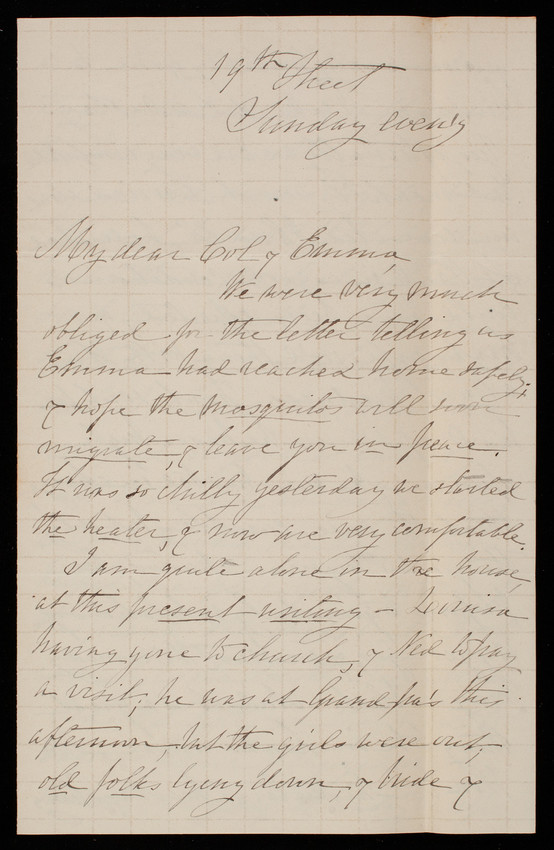 19th Street
Sunday even'g
My dear Col & Emma,
We were very much
obliged for the letter telling us
Emma had reached home safely,
& hope the mosquitos will soon
migrate, & leave you in peace.
It was so chilly yesterday we started
the heater, & now are very comfortable.
I am quite alone in the house,
at this present writing - Louisa
having gone to church, & Ned to pay
a visit; he was at Grand pa's this
afternoon, but the girls were out,
old folks lying down, & bride &